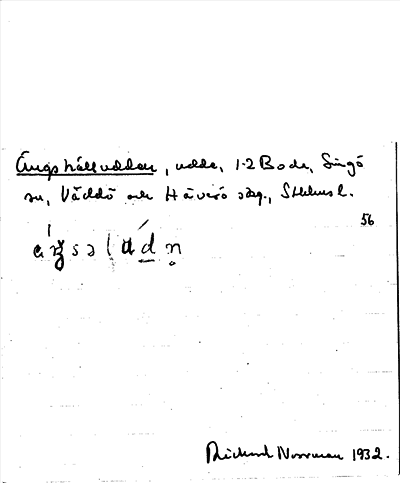 Ängshälludden, udde, 1-2 Boda, Singö
sn, Väddö och Häverö skg., Sthlms l.
56
Richard Norrman 1932.